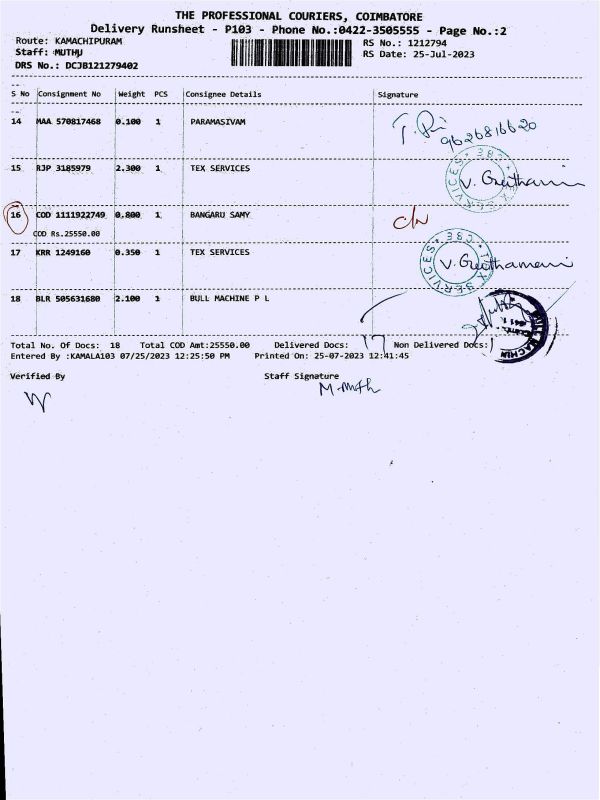 THE PROFESSIONAL COURIERS, COIMBATORE
Delivery Runsheet - P103 - Phone No.:0422-3505555 - Page No.:2
Route: KAMACHIPURAM RS No.: 1212794
Staff: MUTHU RS Date: 25-Jul-2023
DRS No.: DCJB121279402
S No Consignment No Weight PCS Consignee Details Signature
14 MAA 570817468 0.100 1 PARAMASIVAM
9626816620
15 RJP 3185979 2.300 1 TEX SERVICES V. Geethamani
16 COD 1111922749 0.800 1 BANGARU SAMY
COD Rs.25550.00
17 KRR 1249160 0.350 1 TEX SERVICES V. Geethamani
18 BLR 505631680 2.100 1 BULL MACHINE P L
Total No. Of Docs: 18 Total COD Amt:25550.00 Delivered Docs: 17 Non Delivered Docs: 1
Entered By :KAMALA103 07/25/2023 12:25:50 PM Printed On: 25-07-2023 12:41:45
Verified By Staff Signature
M. Muth